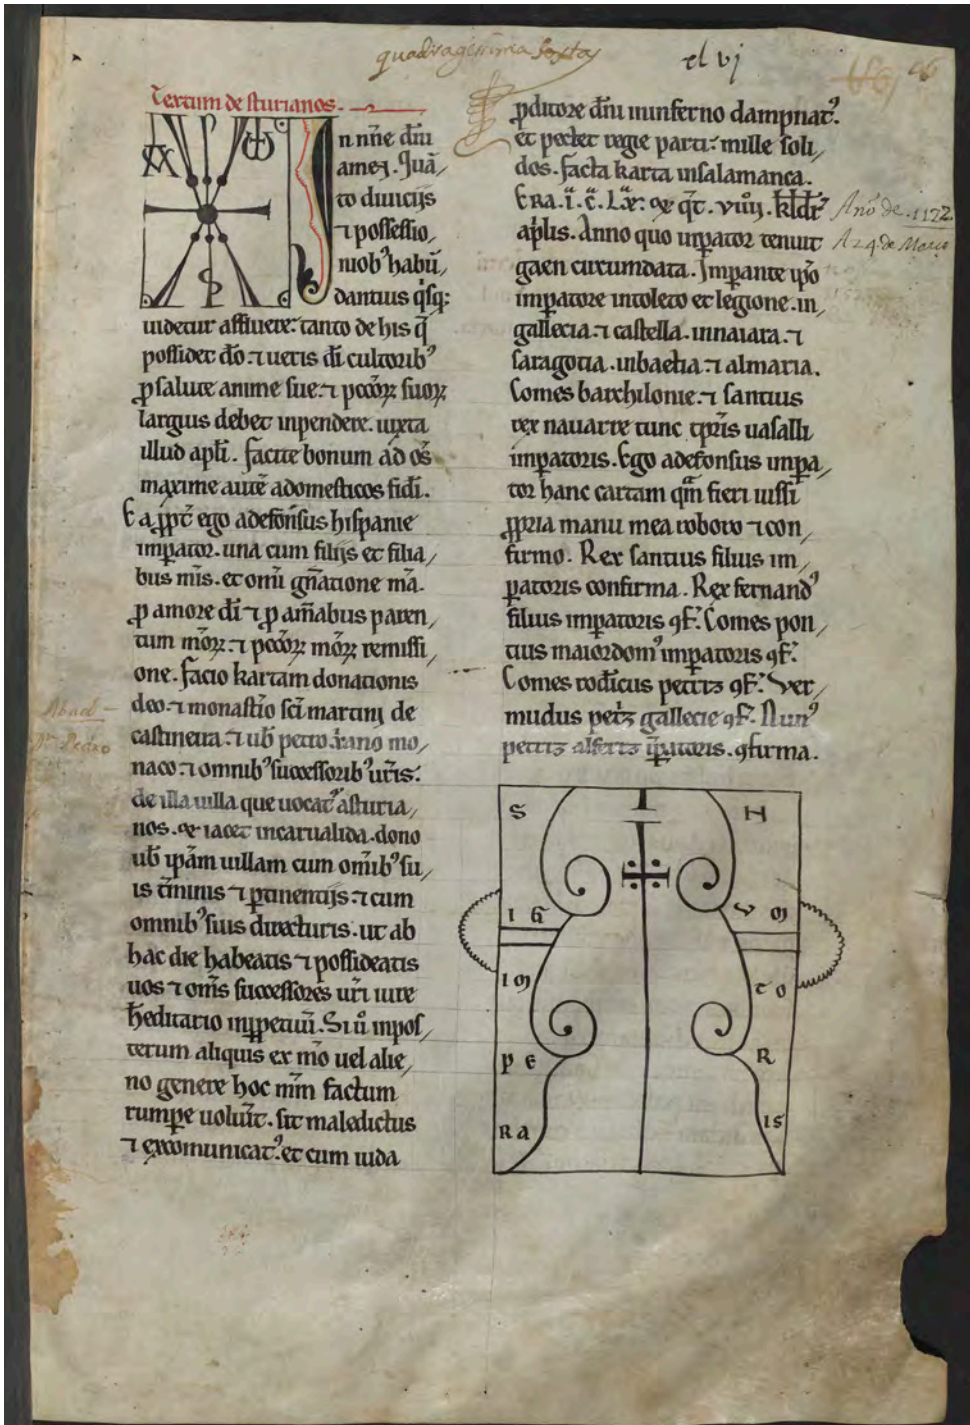 quadragessima sexta
el vj
Textum de sturianos.
n nn̄e dn̄i
amen. Quā,
to diuicijs
⁊ possessio,
niobꝰ habū,
dantius q̇sq:
uidetur affluere: tanto de his q̄
possidet dō ⁊ ueris dī cultoribꝰ
ꝓ salute anime sue: ⁊ peccōꝝ suoꝝ
largius debet inpendere. iuxta
illud apli. facite bonum ad os̄
maxime autē adomesticos fidī.
Ea ꝓpt̄ ego adefonsus hispanie
imꝑator. una cum filijs et filia,
bus mīs. et omī gn̄atione mā.
ꝓ amore dī ⁊ ꝓ am̄abus paren,
tum mōꝝ: ⁊ peccōꝝ mōꝝ remissi,
one. facio kartam donationis
deo: ⁊ monastīo scī martinj de
castineira: ⁊ ub̄ petro mo,
naco: ⁊ omnibꝰ successoribꝰ ur̄is:
de illa uilla que uocatꝰ asturia,
nos. & iacet incarualida. dono
ub̄ ip̄am uillam cum omībꝰ su,
is t̄minis ⁊ ꝑtinentijs: ⁊ cum
omnibꝰ suis directuris. ut ab
hac die habeatis ⁊ possideatis
uos ⁊ oms̄ successores ur̄i iure
h̄editario inꝑpetuū. Si uͦ inpos,
terum aliquis ex mō uel alie,
no genere hoc mm̄ factum
rumꝑe uolūit. sit maledictus
⁊ excomunicatꝰ. et cum iuda
ꝓditore dn̄i ininferno dampnatꝰ.
et pectet regie parti: mille soli,
dos. facta karta insalamanca.
ERA. i. c. Lx: & q̄t. viiij. kldr̄
aplis. Anno quo inꝑator tenuit
gaen circumdata. Imꝑante ip̄o
imꝑatore intoleto et legione. in,
gallecia. ⁊ castella. innaiara. ⁊
saragocia. inbaetia: ⁊ almaria.
Comes barchilonie: ⁊ santius
rex nauarre tunc tꝑris uasalli
imꝑatoris. Ego adefonsus inꝑa,
tor hanc cartam qm̄ fieri iussi
ꝓpria manu mea roboro ⁊ con,
firmo. Rex santius filius im,
ꝑatoris confirma. Rex fernandꝰ
filius imꝑatoris ꝯf: Comes pon,
tius maiordomꝰ imꝑatoris ꝯf:
Comes rodīcus petriz ꝯf: Ver,
mudus petz̄ gallecie ꝯf. Nunꝰ
petriz alferiz iꝑatoris. ꝯfirma.
Ano de .1172.
A 24 de Março
Abad
Pedro
S H
I G V M
IM TO
PE R
RA IS